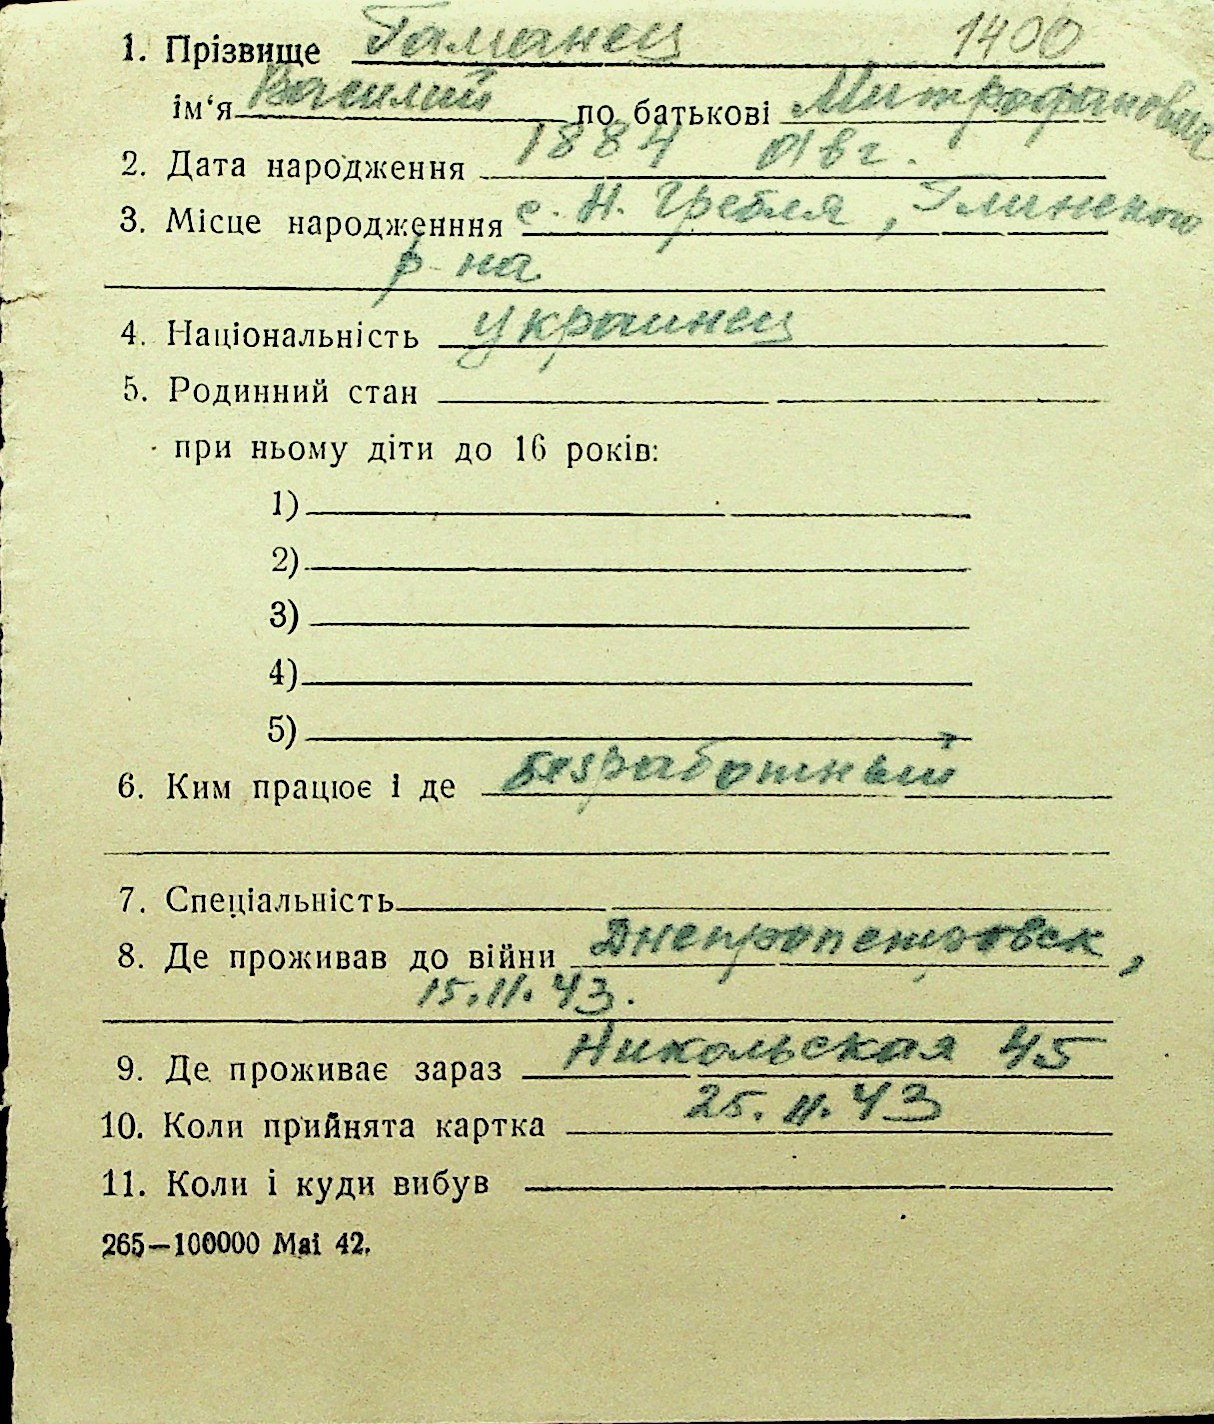 1. Прізвище Гаманец 1400
ім‘я Василий по батькові Митрофанович
2. Дата народження 1884 авг.
3. Місце народженння с. Н. Гребля, Глинского
р-на
4. Національність украинец
5. Родинний стан
при ньому діти до 16 років:
1)
2)
3)
4)
5)
6. Ким працює і де безработный
7. Спеціальність
8. Де проживав до війни Днепропетровск,
15.11.43.
9. Де проживає зараз Никольская 45
10. Коли прийнята картка 25.11.43
11. Коли і куди вибув
265—100000 Mai 42.